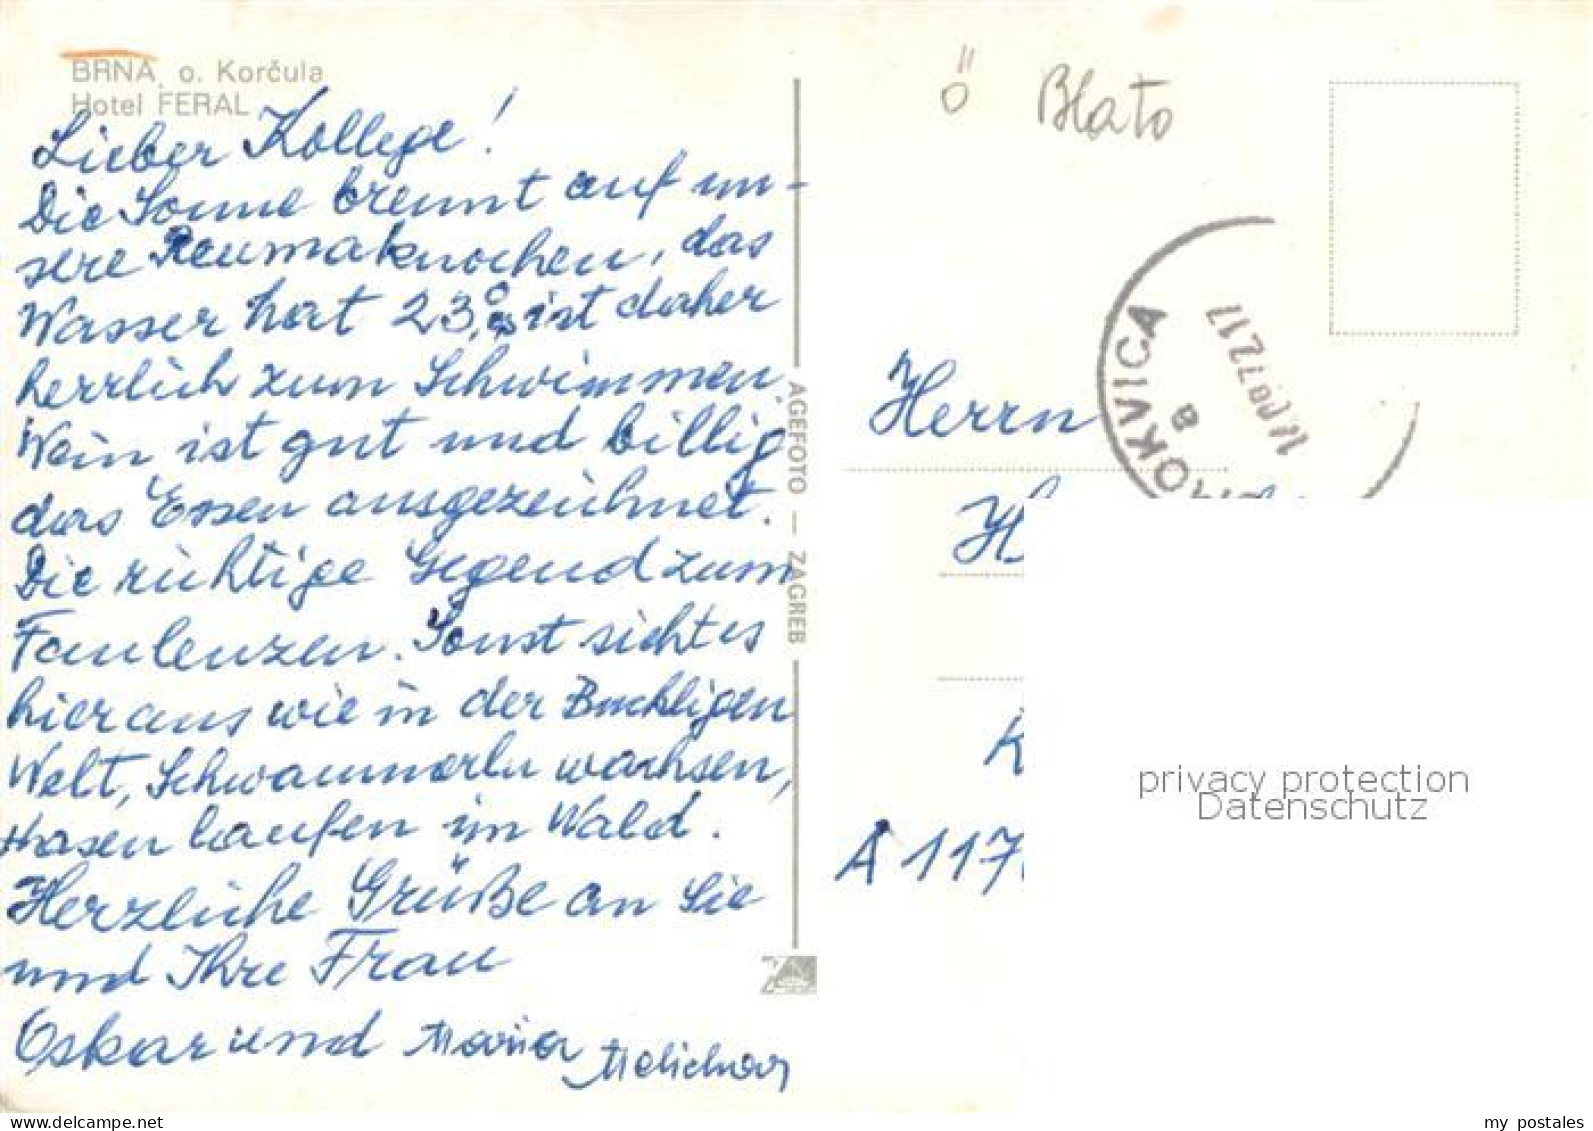 BRNA, o. Korčula
Hotel FERAL
Lieber Kollege!
Die Sonne brennt auf un-
sere Reumaknochen, das
Wasser hat 23°, ist daher
herrlich zum Schwimmen.
Wein ist gut und billig
das Essen ausgezeichnet.
Die richtige Gegend zum
Faulenzen. Sonst sieht es
hier aus wie in der Buckligen
Welt, Schwammerln wachsen,
Hasen laufen im Wald.
Herzliche Grüße an Sie
und Ihre Frau
Oskar und Maria Melichar
AGEFOTO — ZAGREB
ö Blato
OKVICA
a
Herrn
H
K
A 117
privacy protection
Datenschutz
my postales